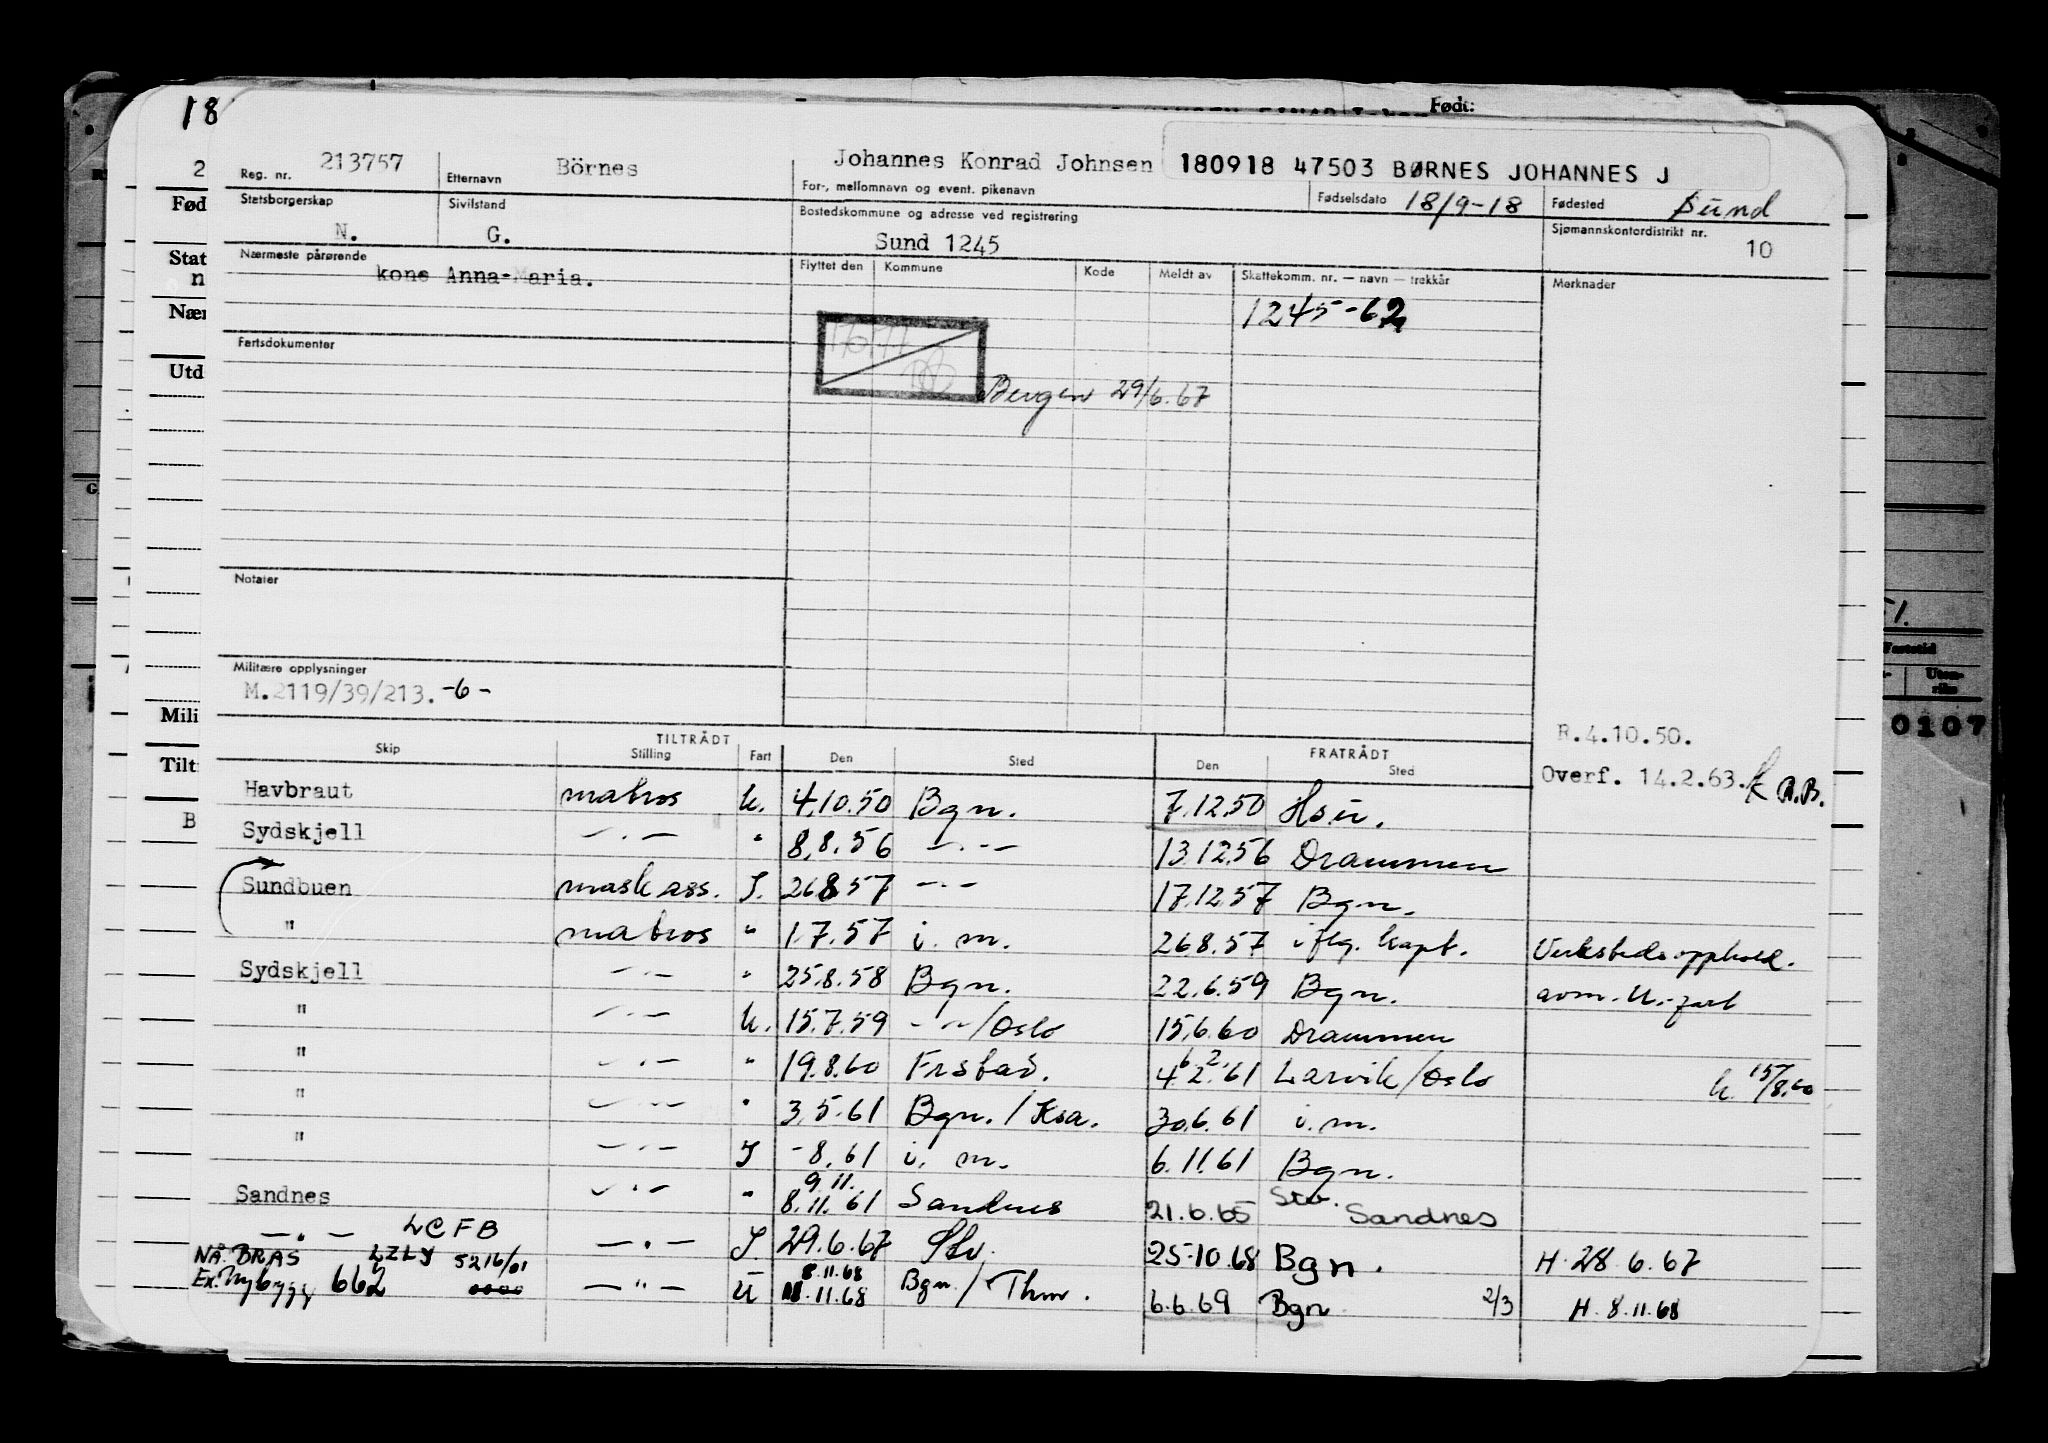 18
Født:
213757 Börnes Johannes Konrad Johnsen 180918 47503 BØRNES JOHANNES J
Reg. nr. Etternavn For-, mellomnavn og event. pikenavn Fødselsdato 18/9-18 Fødested Sund
Statsborgerskap Sivilstand Bostedskommune og adresse ved registrering Sjømannskontordistrikt nr.
N. G. Sund 1245 10
Nærmeste pårørende Flyttet den Kommune Kode Meldt av Skattekomm. nr. — navn — trekkår Merknader
kone Anna-Maria.
1245-62
Fartsdokumenter
Bergen 29/6.67
Notater
Militære opplysninger
M.2119/39/213. -6-
R.4.10.50.
Overf. 14.2.63. R.B.
TILTRÅDT FRATRÅDT
Skip Stilling Fart Den Sted Den Sted
Havbraut matros U. 4.10.50 Bgn. 7.12.50
Sydskjell — . — " 8.8.56 — . — 13.12.56 Drammen
Sundbuen mask ass. I. 26.8.57 — . — 17.12.57 Bgn.
" matros " 1.7.57 i. m. 26.8.57 iflg. kapt. Verkstedsopphold.
Sydskjell — . — " 25.8.58 Bgn. 22.6.59 Bgn. avm. U.-fart
" — . — U. 15.7.59 — " —/Oslo 15.6.60 Drammen
" — . — " 19.8.60 Frstad. 4.2.61 6 2. Larvik/Oslo U. 15/8.60
" — . — " 3.5.61 Bgn./Ksa. 30.6.61 i.m.
" — . — I - 8.61 i. m. 6.11.61 Bgn.
Sandnes — . — " 9.11. 8.11.61 Sandnes 21.6.65 Stv. Sandnes
— . — LCFB — . — I 29.6.67 Stv. 25-10.68 Bgn. H. 28.6.67
NÅ: BRAS LZLY 5216/01
Ex. Nybygg 662 — " — U 8.11.68 .11.68 Bgn./Thm. 6.6.69 Bgn 2/3 H. 8.11.68
2
Fød
Stat
n
Nær
Utd
Mili
Tilt
B
51.
Fartstid
Uten-
riks
0107